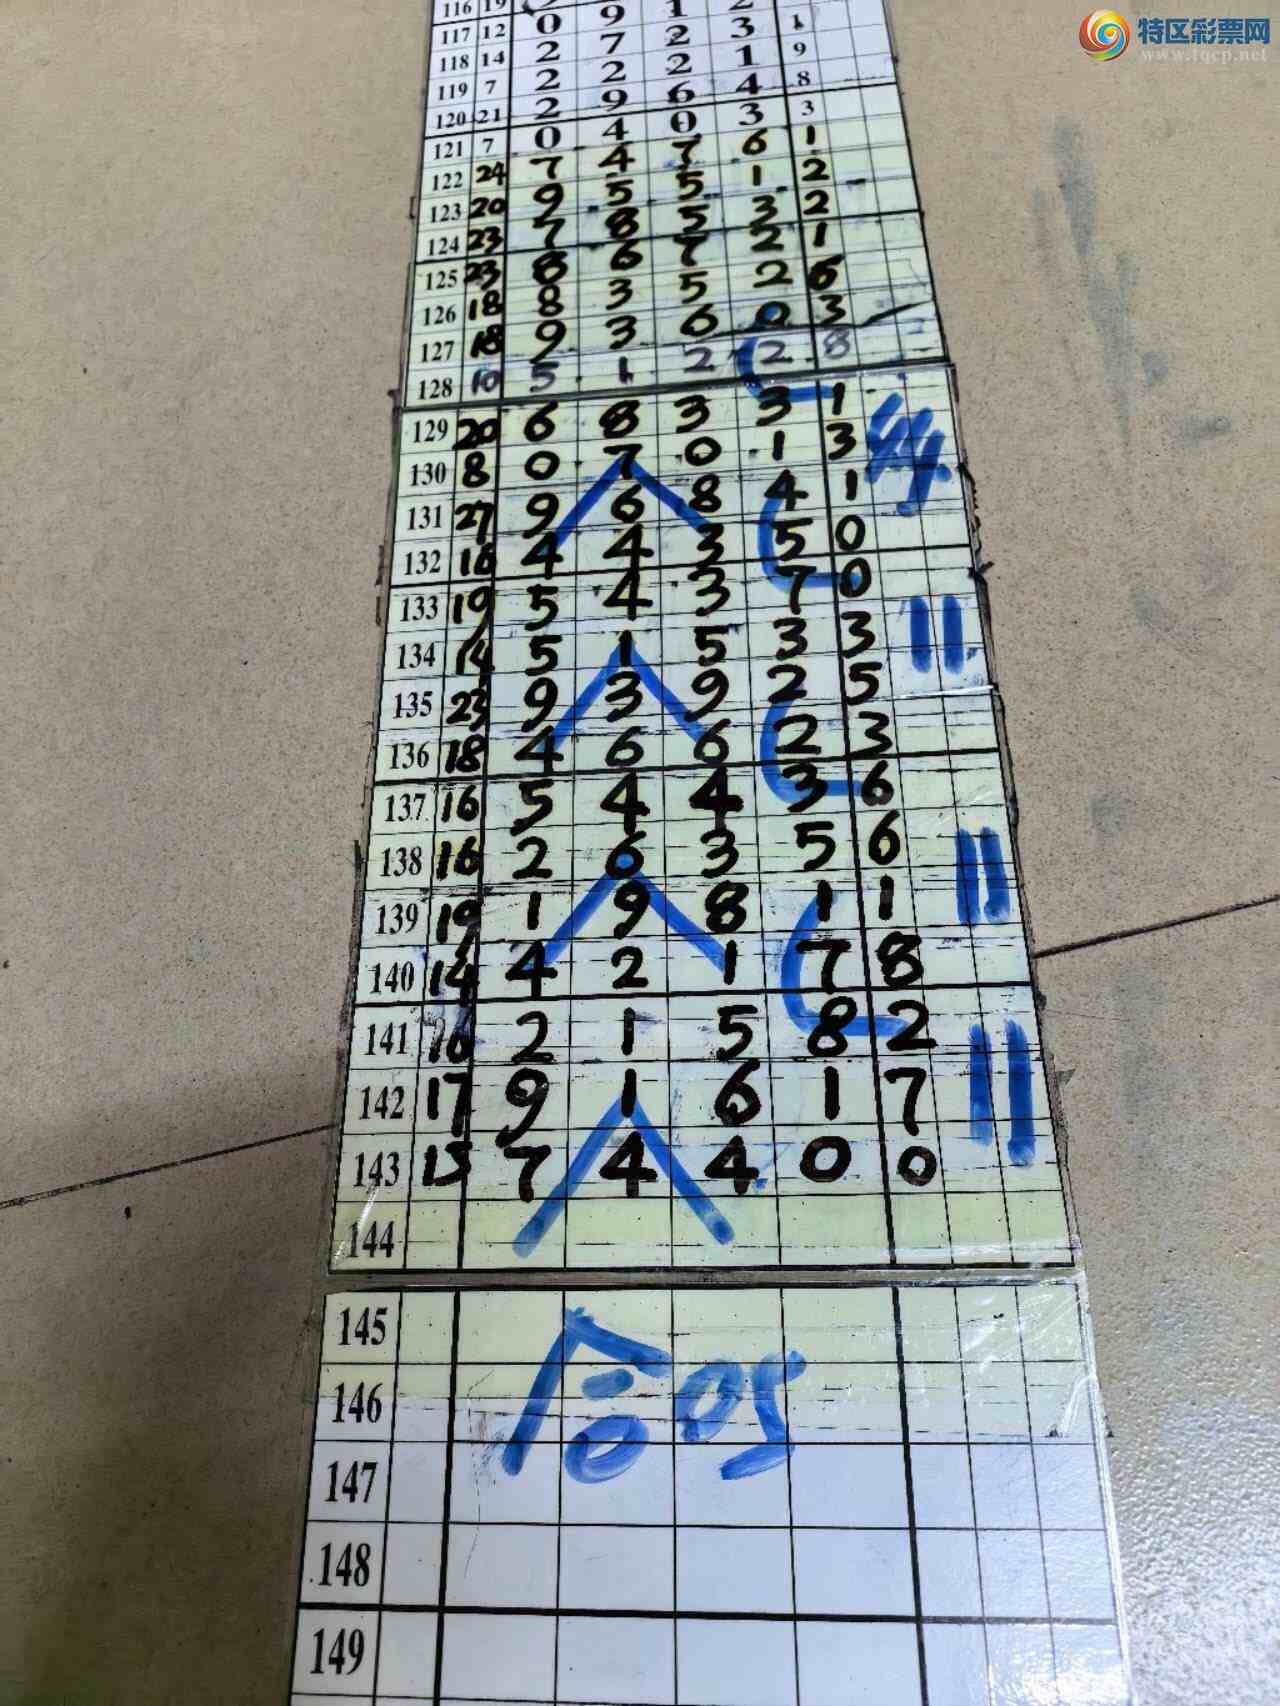 特区彩票网
www.tqcp.net
116 19 2
117 12 0 9 1 3 1
118 14 2 7 2 1 9
119 7 2 2 2 4 8
120 21 2 9 6 3 3
121 7 0 4 0 6 1
122 24 7 4 7 1 2
123 20 9 5 5 3 2
124 23 7 8 5 2 1
125 23 8 6 7 2 6
126 18 8 3 5 0 3
127 18 9 3 6 2 8
128 10 5 1 2
129 20 6 8 3 3 1
130 8 0 7 0 1 3
131 27 9 6 8 4 1
132 16 4 4 3 5 0
133 19 5 4 3 7 0
134 14 5 1 5 3 3
135 23 9 3 9 2 5
136 18 4 6 6 2 3
137 16 5 4 4 3 6
138 16 2 6 3 5 6
139 19 1 9 8 1 1
140 14 4 2 1 7 8
141 16 2 1 5 8 2
142 17 9 1 6 1 7
143 15 7 4 4 0 0
144
145
146
合05
147
148
149